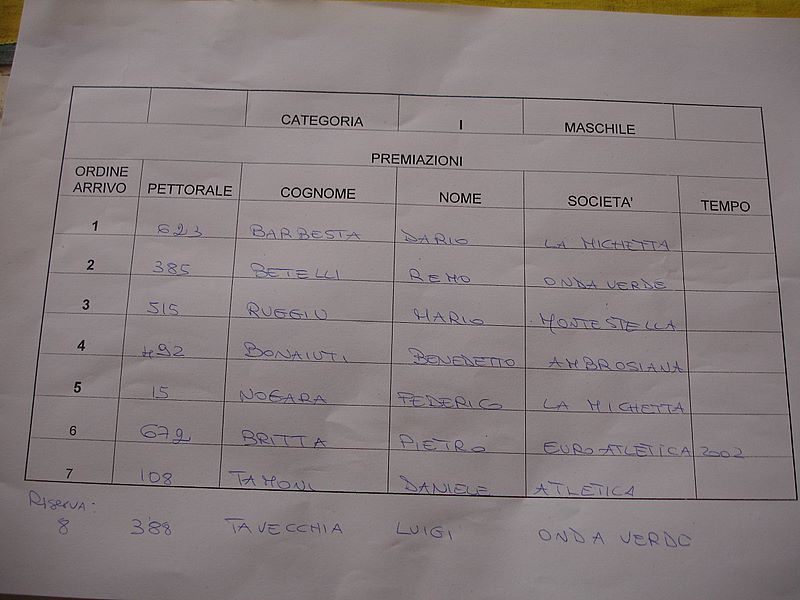 CATEGORIA I MASCHILE
PREMIAZIONI
ORDINE ARRIVO PETTORALE COGNOME NOME SOCIETA' TEMPO
1 623 BARBESTA DARIO LA MICHETTA
2 385 BETELLI REMO ONDA VERDE
3 515 RUGGIU MARIO MONTESTELLA
4 492 BONAIUTI BENEDETTO AMBROSIANA
5 15 NOGARA FEDERICO LA MICHETTA
6 672 BRITTA PIETRO EURO ATLETICA 2002
7 108 TAMONI DANIELE ATLETICA
RISERVA:
8 388 TAVECCHIA LUIGI ONDA VERDO